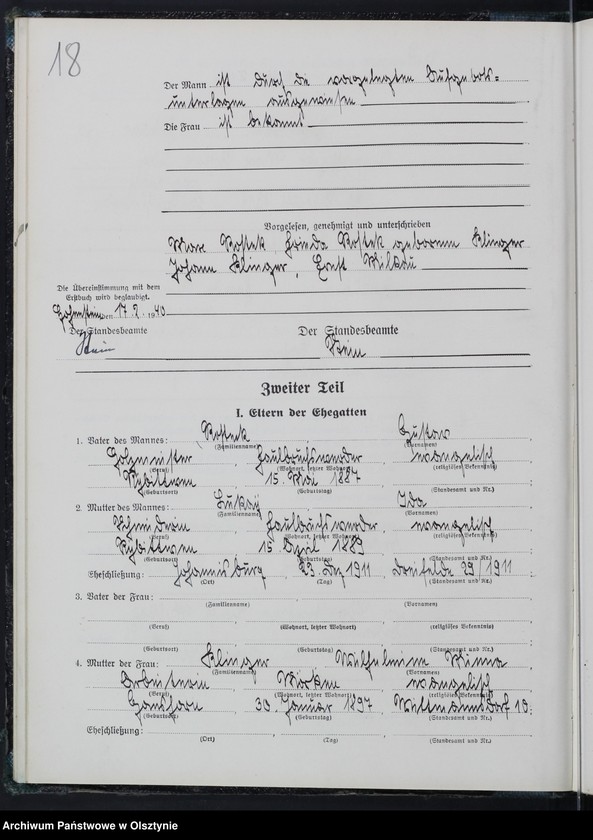 18
Der Mann ist durch die vorgelegten Aufgebots=
unterlagen ausgewiesen
Die Frau ist bekannt
Vorgelesen, genehmigt und unterschrieben
Max Rostek, Frieda Rostek geborene Klinger
Johann Klinger, Ernst Wilkau
Die Übereinstimmung mit dem
Erstbuch wird beglaubigt.
Hohenstein den 17. 2. 1940
Der Standesbeamte
Der Standesbeamte
Zweiter Teil
I. Eltern der Ehegatten
1. Vater des Mannes: Rostek Gustav
(Familienname) (Vornamen)
Faulbruchswerder evangelisch
(Beruf) (Wohnort, letzter Wohnort) (religiöses Bekenntnis)
15. Mai 1887
(Geburtsort) (Geburtstag) (Standesamt und Nr.)
2. Mutter des Mannes: Ida
(Familienname) (Vornamen)
Schneiderin Faulbruchswerder evangelisch
(Beruf) (Wohnort, letzter Wohnort) (religiöses Bekenntnis)
15. April 1889
(Geburtsort) (Geburtstag) (Standesamt und Nr.)
Eheschließung: Johannisburg 23. Dez 1911 Dreifelde 29/1911
(Ort) (Tag) (Standesamt und Nr.)
3. Vater der Frau:
(Familienname) (Vornamen)
(Beruf) (Wohnort, letzter Wohnort) (religiöses Bekenntnis)
(Geburtsort) (Geburtstag) (Standesamt und Nr.)
4. Mutter der Frau: Klinger Wilhelmine
(Familienname) (Vornamen)
Arbeiterin Mörken evangelisch
(Beruf) (Wohnort, letzter Wohnort) (religiöses Bekenntnis)
Ganshorn 30. Januar 1897 Wittmannsdorf 10
(Geburtsort) (Geburtstag) (Standesamt und Nr.)
Eheschließung:
(Ort) (Tag) (Standesamt und Nr.)
Archiwum Państwowe w Olsztynie